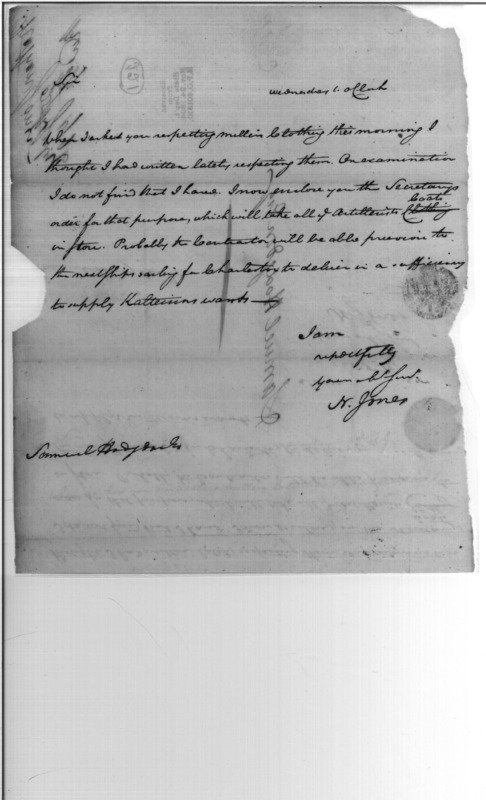 Wednesday 1. oClock
Sir
When I asked you respecting Mullin Clothing this morning I
thought I had written lately respecting them. On examination
I do not find that I have. I now enclose you the Secretarys
order for that purpose, which will take all ye Artillerists Coats Clothing
in store. Probably the Contractor will be able previous to
the next Ships sailing for Charleston to deliver in a sufficiency
to supply Kalteisens wants
I am
respectfully
your
N. Jones
Samuel Hodgdon